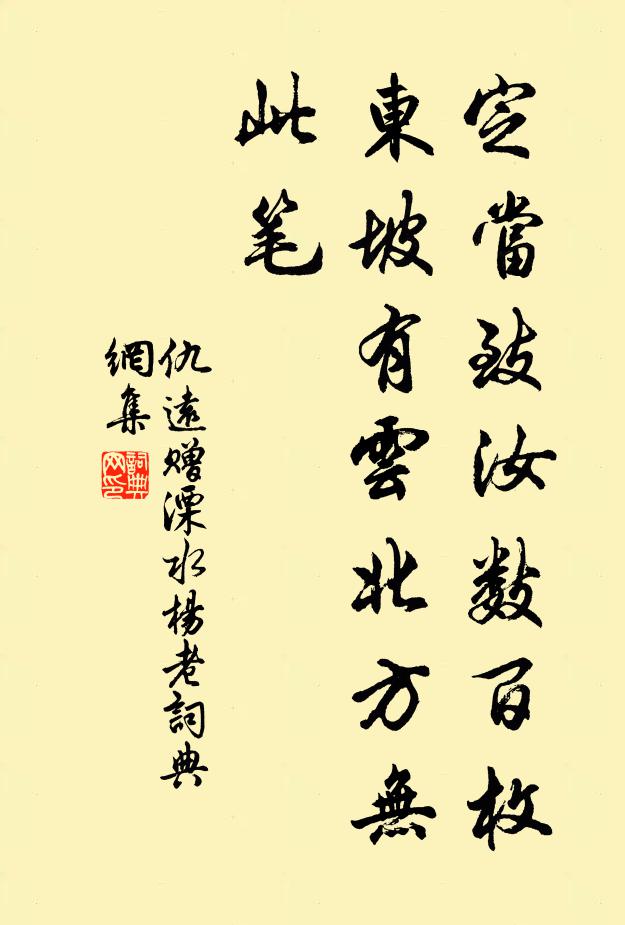 定當致汝數百枚
東坡有雲北方無
此笔
仇遠赠溧水楊老詞典
網集
詞典
网印